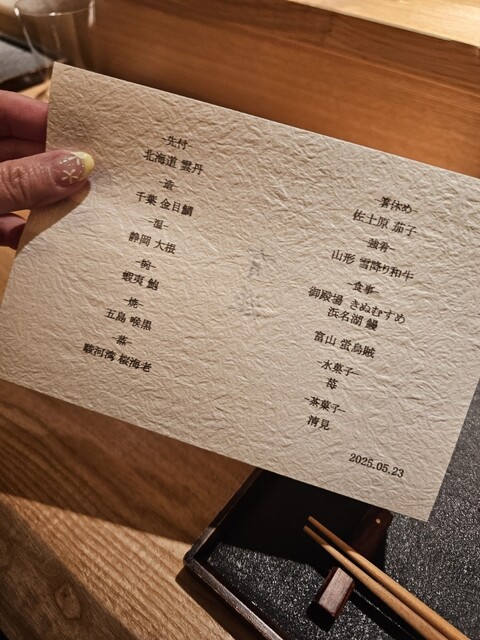 -先付-
北海道 雲丹
-造-
千葉 金目鯛
-温-
静岡 大根
-椀-
蝦夷 鮑
-焼-
五島 喉黒
-蒸-
駿河湾 桜海老
-箸休め-
佐土原 茄子
-強肴-
山形 雪降り和牛
-食事-
御殿場 きぬむすめ
浜名湖 鰻
富山 蛍烏賊
-水菓子-
苺
-茶菓子-
清見
2025.05.23